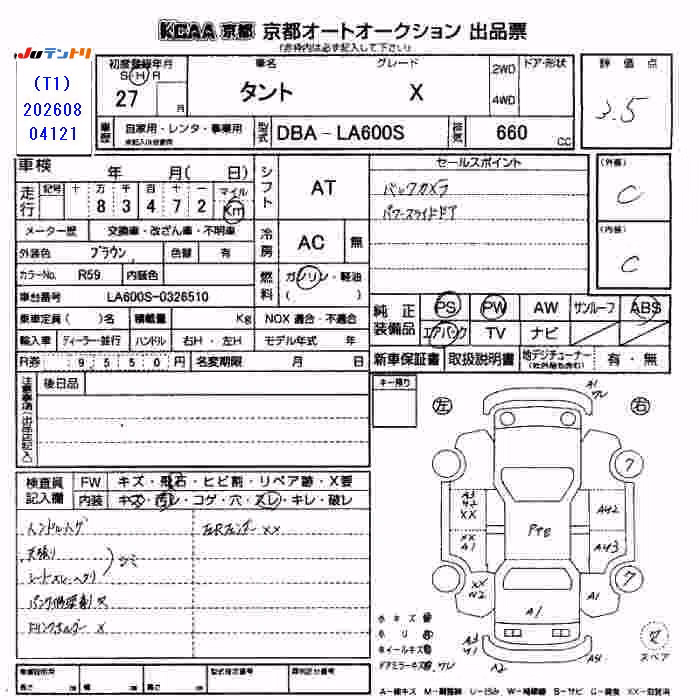 KCAA 京都 京都オートオークション 出品票
(赤枠内は必ず記入して下さい)
JUテントリ
(T1)
202608
04121
初度登録年月
S・H・R
27 月
車名 グレード
タント X
2WD
4WD
ドア・形状
評価点
3.5
車歴
自家用・レンタ・事業用
未記入は自家用
型式
DBA-LA600S
排気
660 CC
車検 年 月( 日)
シフト
AT
セールスポイント
バックカメラ
パワースライドドア
(外装)
C
(内装)
C
走行
記号 十 万 千 百 十 一 マイル
8 3 4 7 2 Km
メーター歴 交換車・改ざん車・不明車
冷房
AC 無
外装色 ブラウン 色替 有
カラーNo. R59 内装色
燃料
ガソリン・軽油
( )
車台番号 LA600S-0326510
純正装備品
PS PW AW サンルーフ ABS
エアバック TV ナビ
乗車定員( )名 積載量 Kg NOX 適合・不適合
輸入車 ディーラー・並行 ハンドル 右H・左H モデル年式 年
新車保証書 取扱説明書 地デジチューナー 有・無
R券 9550円 名変期限 月 日
注意事項・出品店記入
後日品
キー預り
左 右
A1
ワレ
7
A3
ヤ2
XX
XX
A1
Pte
Aヤ2
Aヤ3
7
XX
ヤ2
A1
A1
A2
検査員記入欄
FW キズ・飛石・ヒビ割・リペア跡・X要
内装 キズ・汚レ・コゲ・穴・スレ・キレ・破レ
ハンドルハゲ
左Rフェンダー XX
天張り
シートスレ、ヘタリ
シミ
パンク修理剤 欠
ドリンクホルダー X
キズ
ホイールキズ
ドアミラーキズ、ワレ
スペア
車両総重量
cm 高さ cm 長さ cm
型式指定番号
類別区分番号
A-線キズ